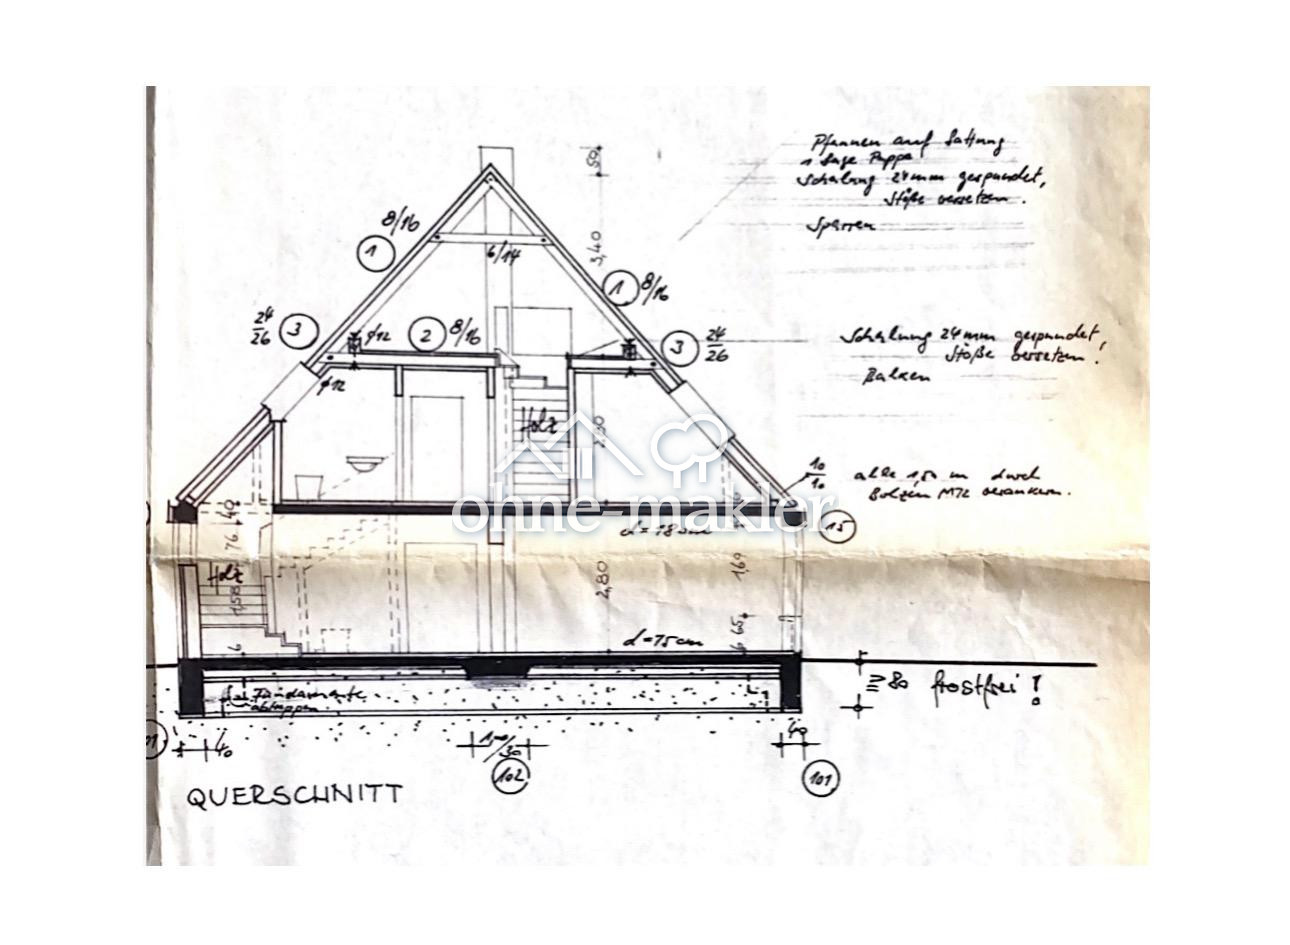 50
Pfannen auf Lattung
1 Lage Pappe
Schalung 24 mm gespundet,
Stöße versetzen.
Sparren
8/16
1
6/14
3,40
1
8/16
24
26
3
φ12
2
8/16
3
24
26
Schalung 24 mm gespundet,
Stöße versetzen.
Balken
φ12
Holz
10
10
alle 1,50 m durch
Bolzen M12 verankern.
40
ohne-makler
15
d=18cm
76
Holz
1,58
2,80
1,69
65
6
6
d=15cm
Fundamente
abtreppen
≥ 80 frostfrei!
40
1,00/30
40
102
101
QUERSCHNITT